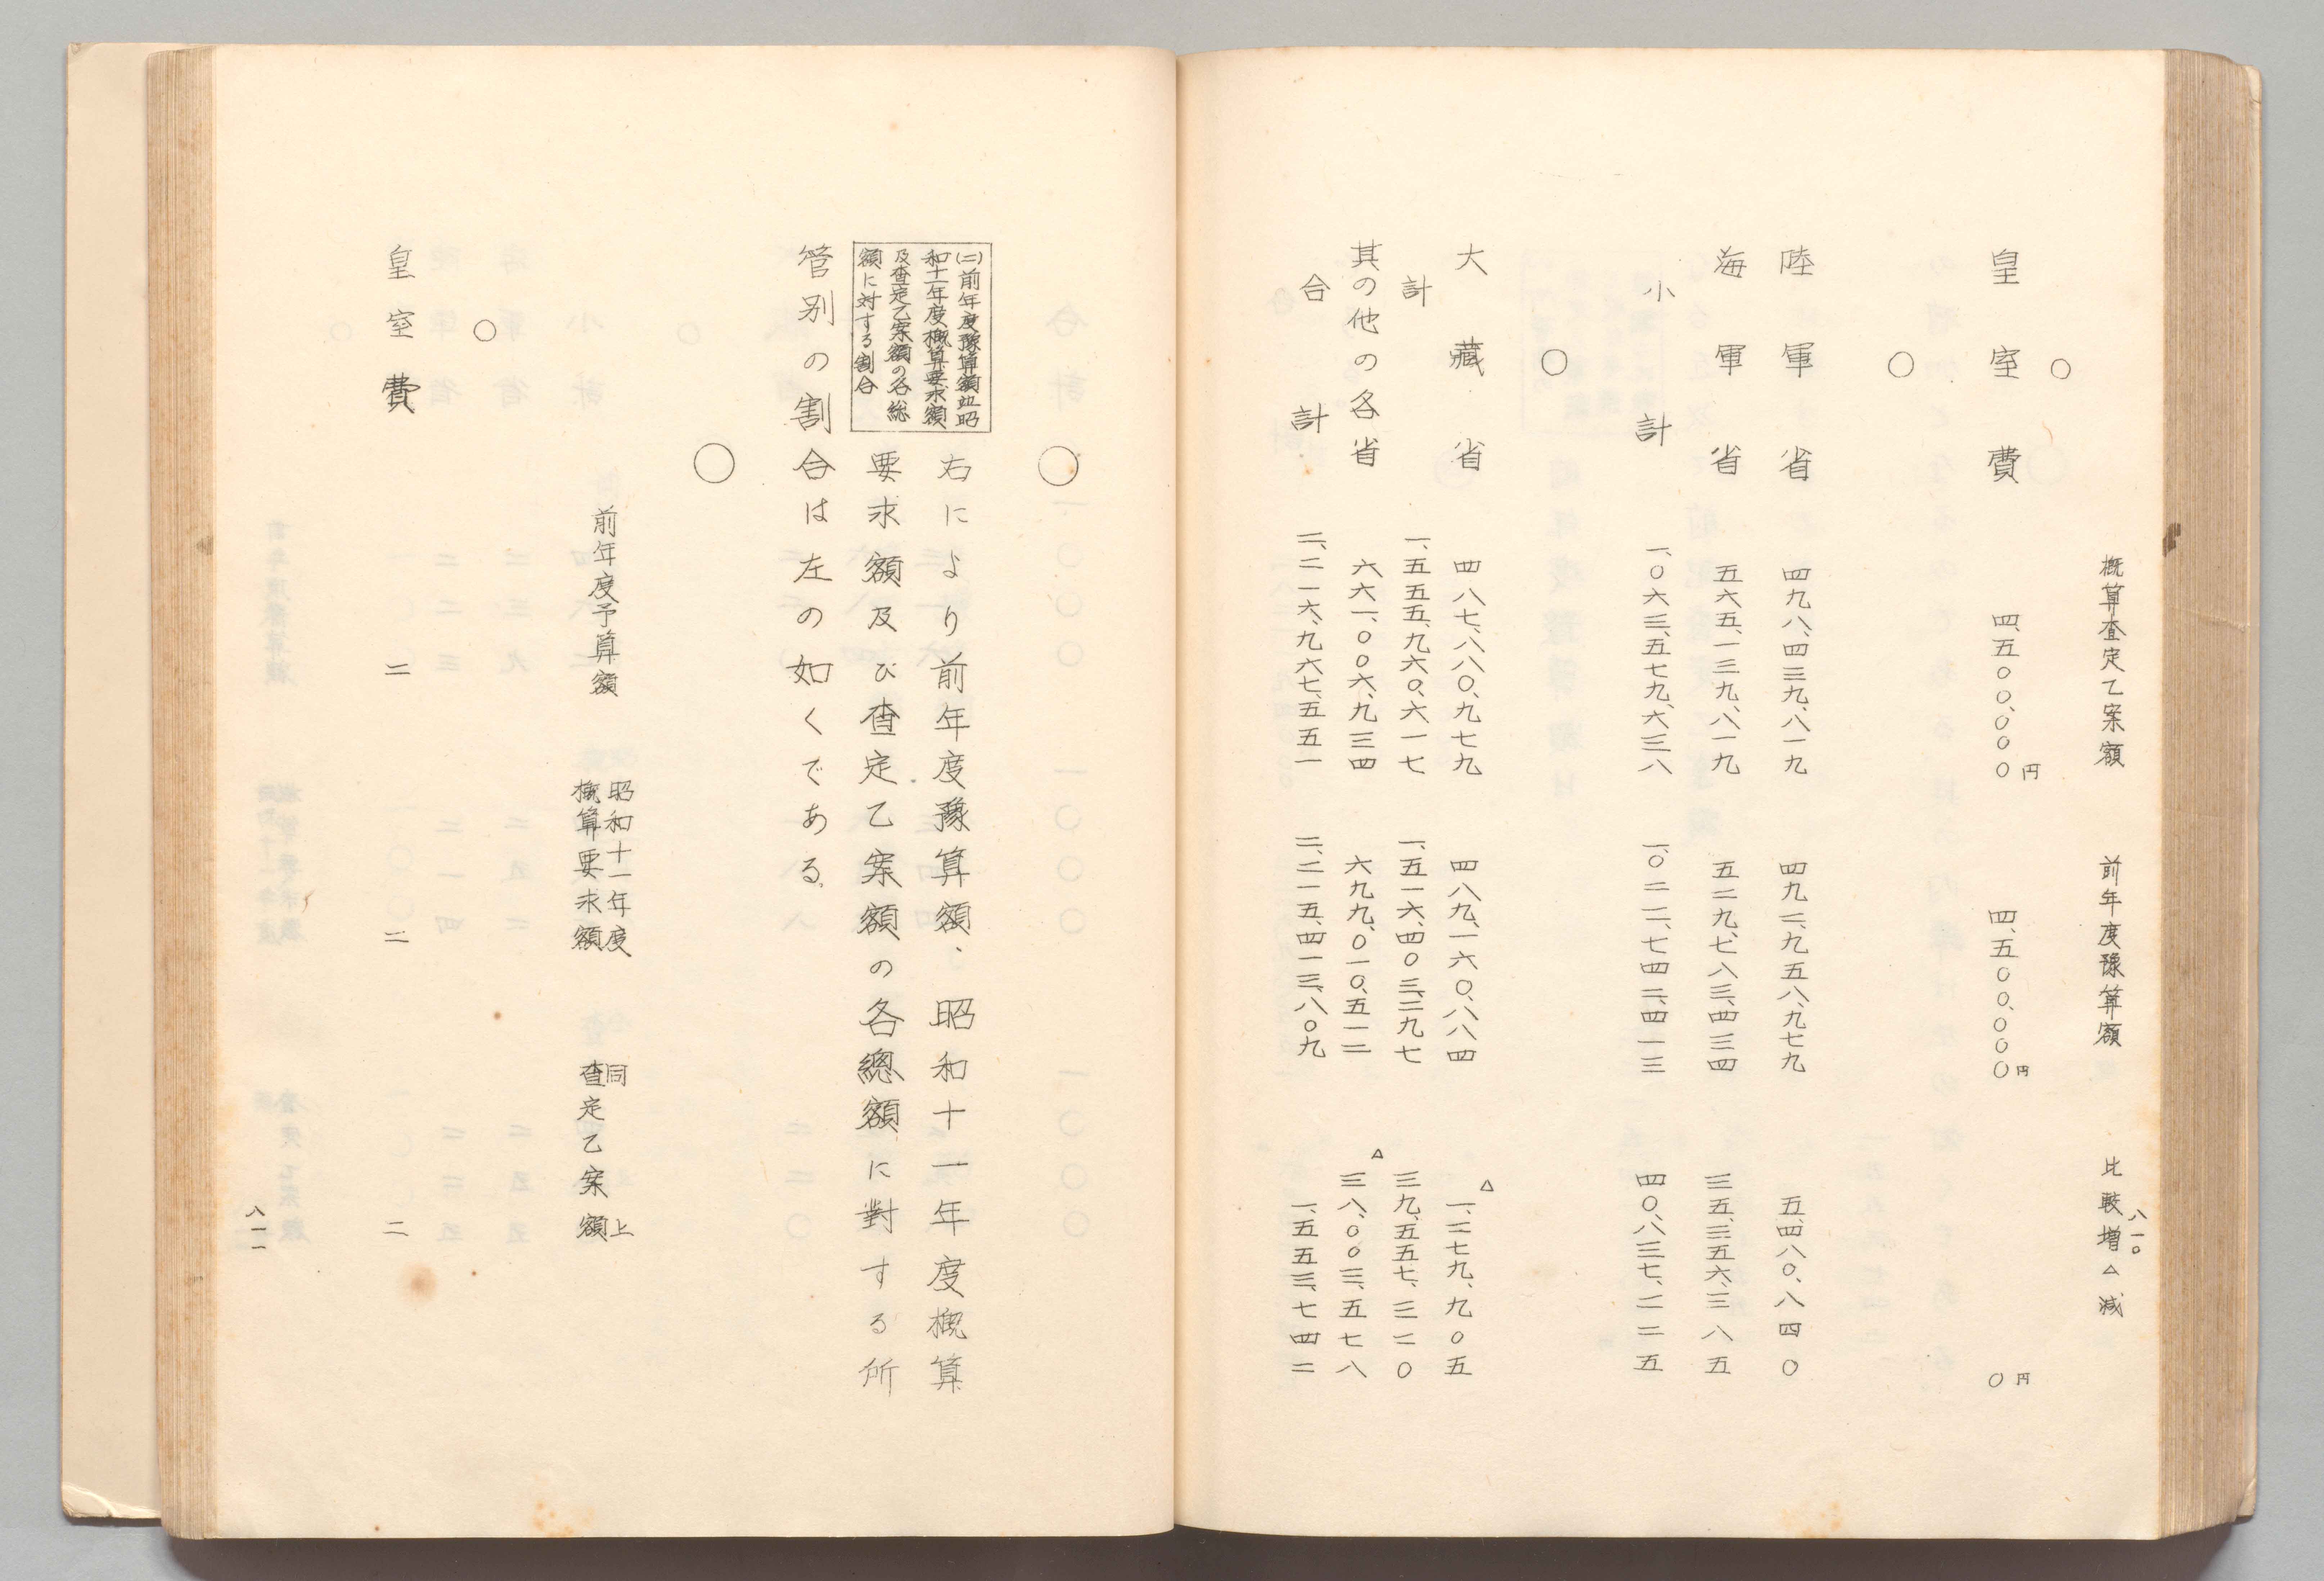 八一〇
概算査定乙案額 前年度豫算額 比較増△減
○
皇室費 四、五〇〇、〇〇〇円 四、五〇〇、〇〇〇円 〇円
○
陸軍省 四九八、四三九、八一九 四九二、九五八、九七九 五、四八〇、八四〇
海軍省 五六五、一三九、八一九 五二九、七八三、四三四 三五、三五六、三八五
小計 一、〇六三、五七九、六三八 一、〇二二、七四二、四一三 四〇、八三七、二二五
○
大藏省 四八七、八八〇、九七九 四八九、一六〇、八八四 △一、二七九、九〇五
計 一、五五五、九六〇、六一七 一、五一六、四〇三、二九七 三九、五五七、三二〇
其の他の各省 六六一、〇〇六、九三四 六九九、〇一〇、五一二 △三八、〇〇三、五七八
合計 二、二一六、九六七、五五一 二、二一五、四一三、八〇九 一、五五三、七四二
○
(二)前年度豫算額竝昭
和十一年度概算要求額
及査定乙案額の各総
額に対する割合
右により前年度豫算額、昭和十一年度概算
要求額及び査定乙案額の各總額に對する所
管別の割合は左の如くである。
○
前年度予算額 昭和十一年度概算要求額 同上査定乙案額
○
皇室費 二 二 二
八一一